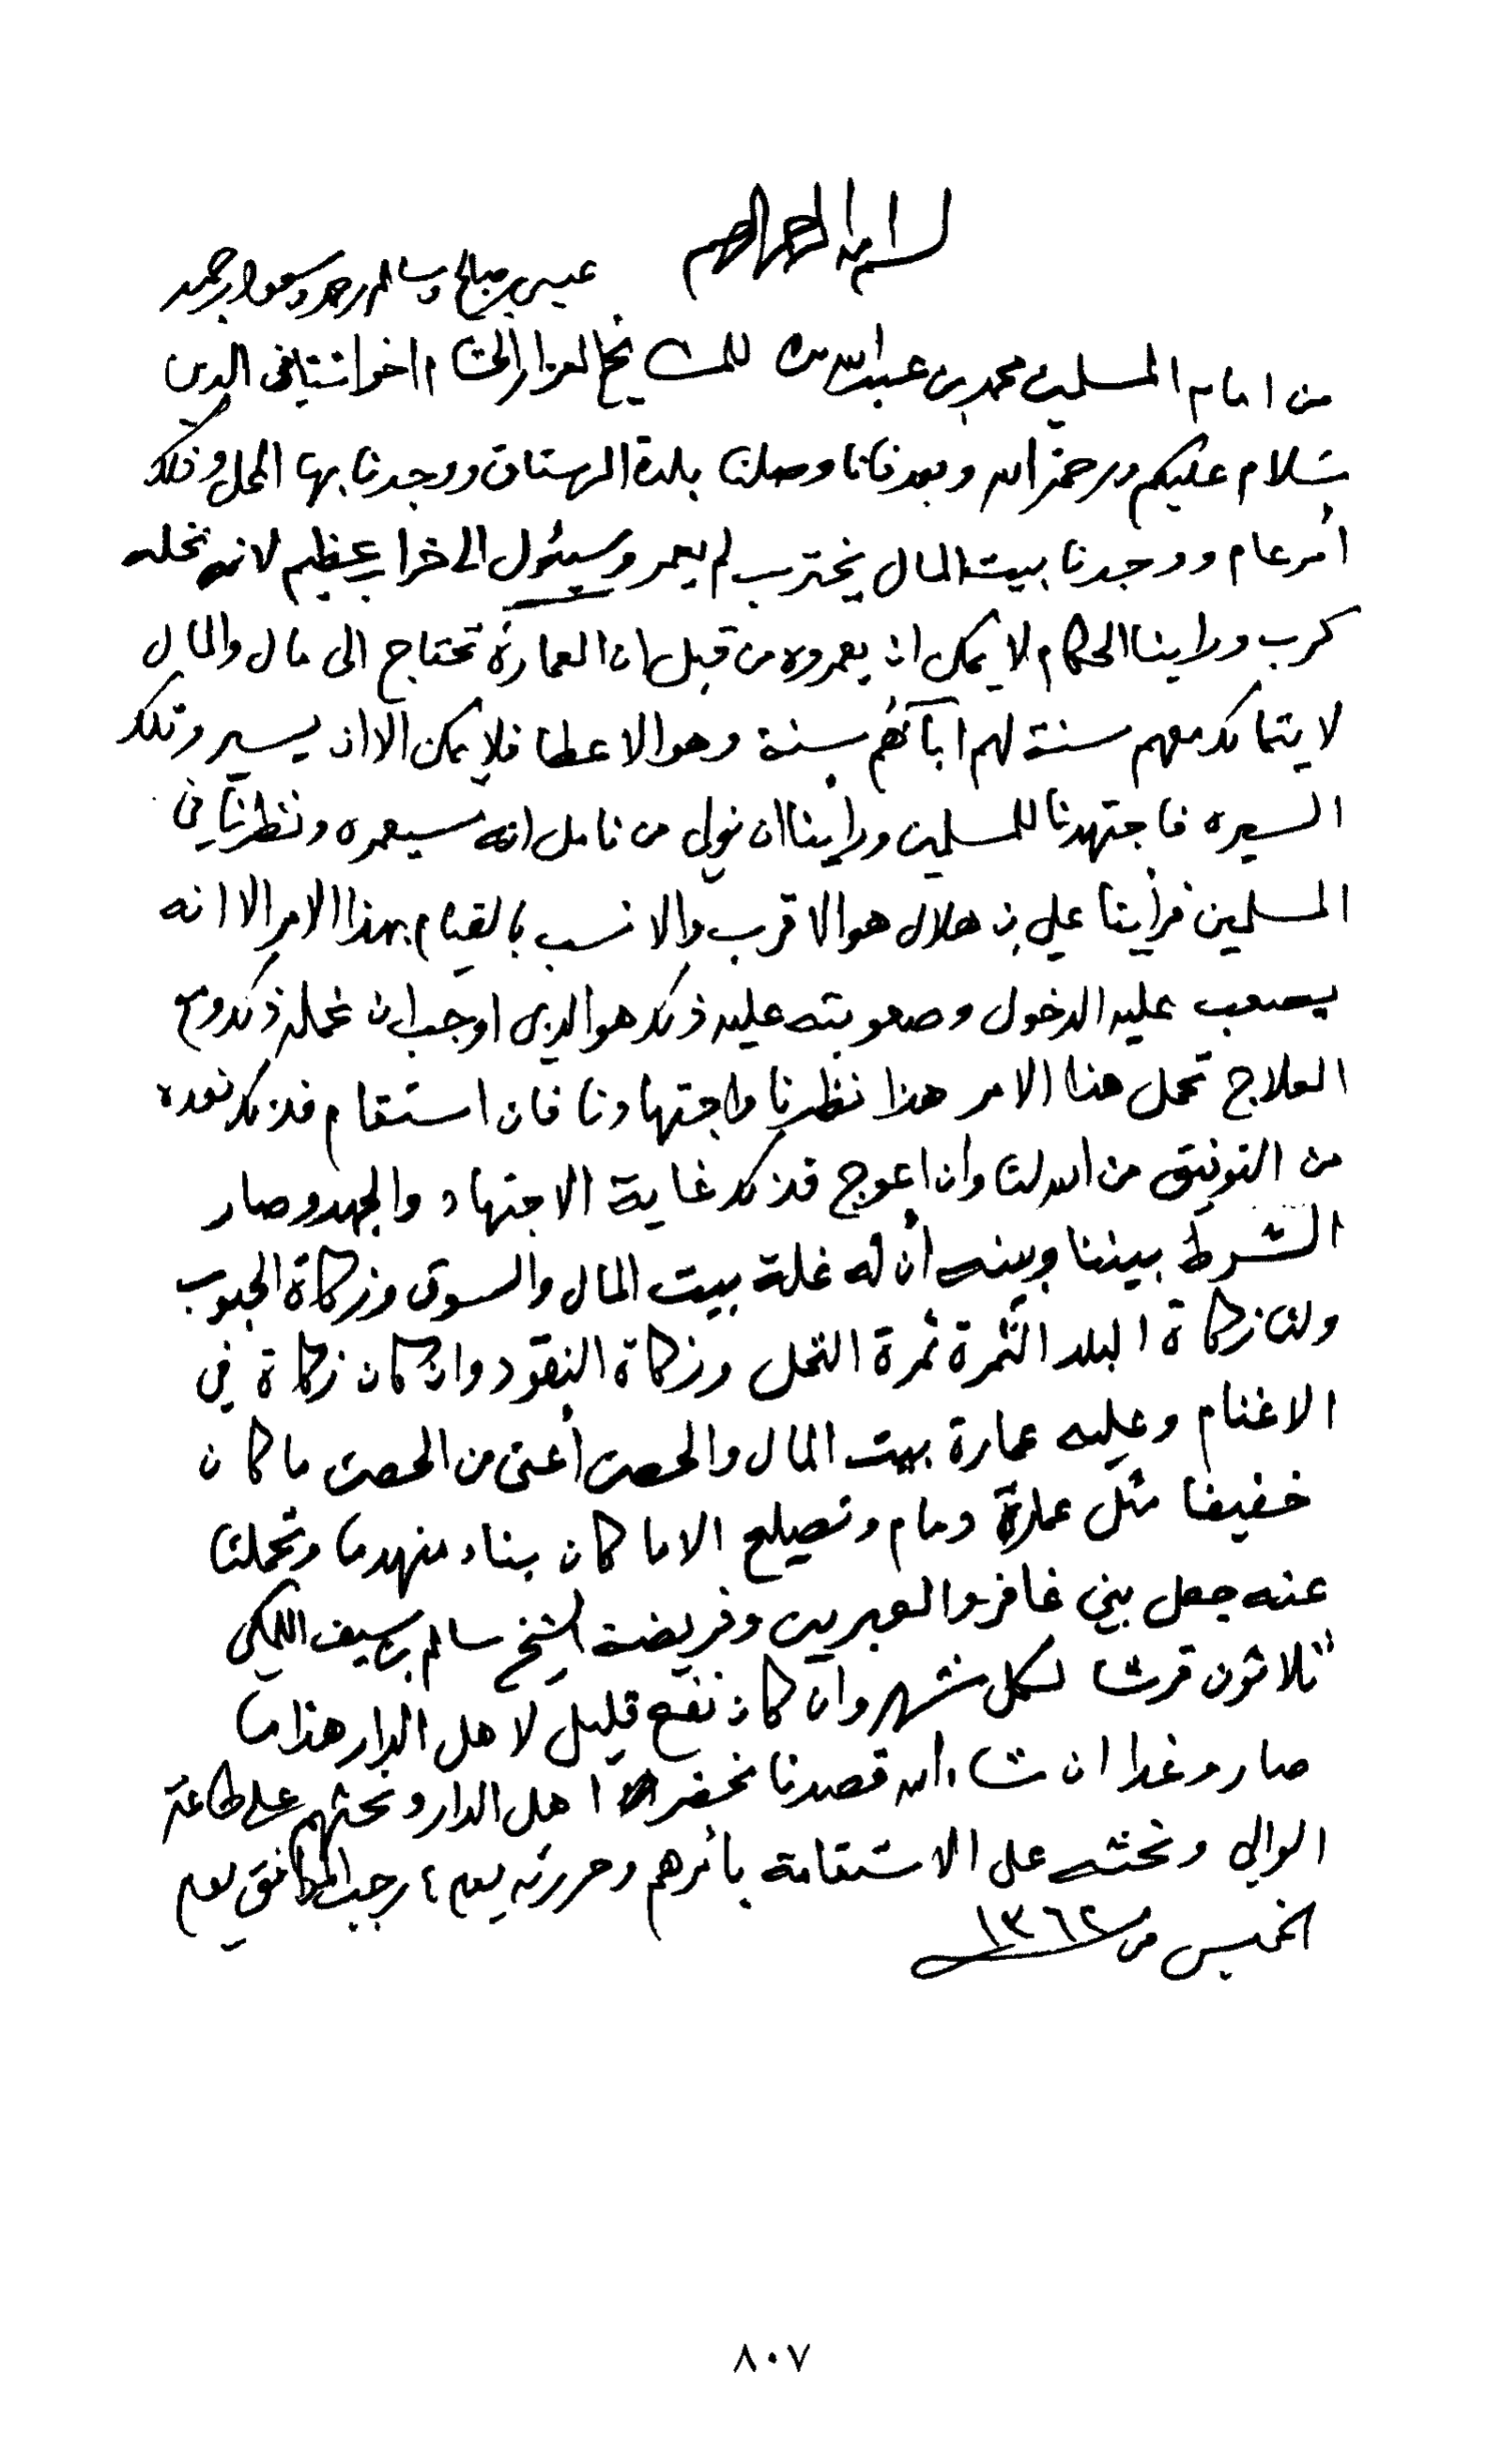 بسم الله الرحمن الرحيم
عيسى بن صالح وسالم بن حمد وسعود بن حمد
من امام المسلمين محمد بن عبدالله للمشايخ العزاز الحشام اخواننا في الدين
سلام عليكم ورحمة الله وبعد فانا وصلنا بلدة الرستاق ووجدنا بها المحل وذلك
أمر عام ووجدنا بيت المال يخترب لم يعمر وسيئول الى خراب عظيم لانه نخله
كرب وراينا الحكام لا يمكن ان يعمروه من قبل ان العمارة تحتاج الى مال والمال
لا يتماسك معهم سنة لهم آباؤهم بسنة وهو الاعطا فلا يمكن الا ان يسير وتلك
السيره فاجتهدنا للمسلمين وراينا ان نولي من نامل انه سيعمره ونظرنا في
المسلمين فرأينا علي بن هلال هو الاقرب والانسب بالقيام بهذا الامر الا انه
يصعب عليه الدخول وصعوبته عليه ذلك هو الذي اوجب ان نحمله ذلك ومع
العلاج تحمل هذا الامر هذا نظرنا واجتهادنا فان استقام فذلك نعده
من التوفيق من الله لنا وان اعوج فذلك غاية الاجتهاد والجهد وصار
الشرط بيننا وبينه أن له غلة بيت المال والسوق وزكاة الحبوب
ولنا زكاة البلد الثمرة ثمرة النخل وزكاة النقود وان كان زكاة في
الاغنام وعليه عمارة بيت المال والحصن أعنى من الحصن ما كان
خفيفا مثل عمارة دمام وتصيلح الا ما كان بناء منهدما وتحملنا
عنه جعل بني غافر والعبريين وفريضة الشيخ سالم بن سيف اللمكي
ثلاثون قرشا لكل شهر وان كان نفع قليل لاهل الدار هذا ما
صار وغدا ان شاء الله قصدنا نحضر اهل الدار ونحثهم على طاعة
الوالي ونحثه على الاستقامة بأمرهم وحررته يوم ٤ رجب الموافق يوم
الخميس من ١٣٦٢
٨٠٧